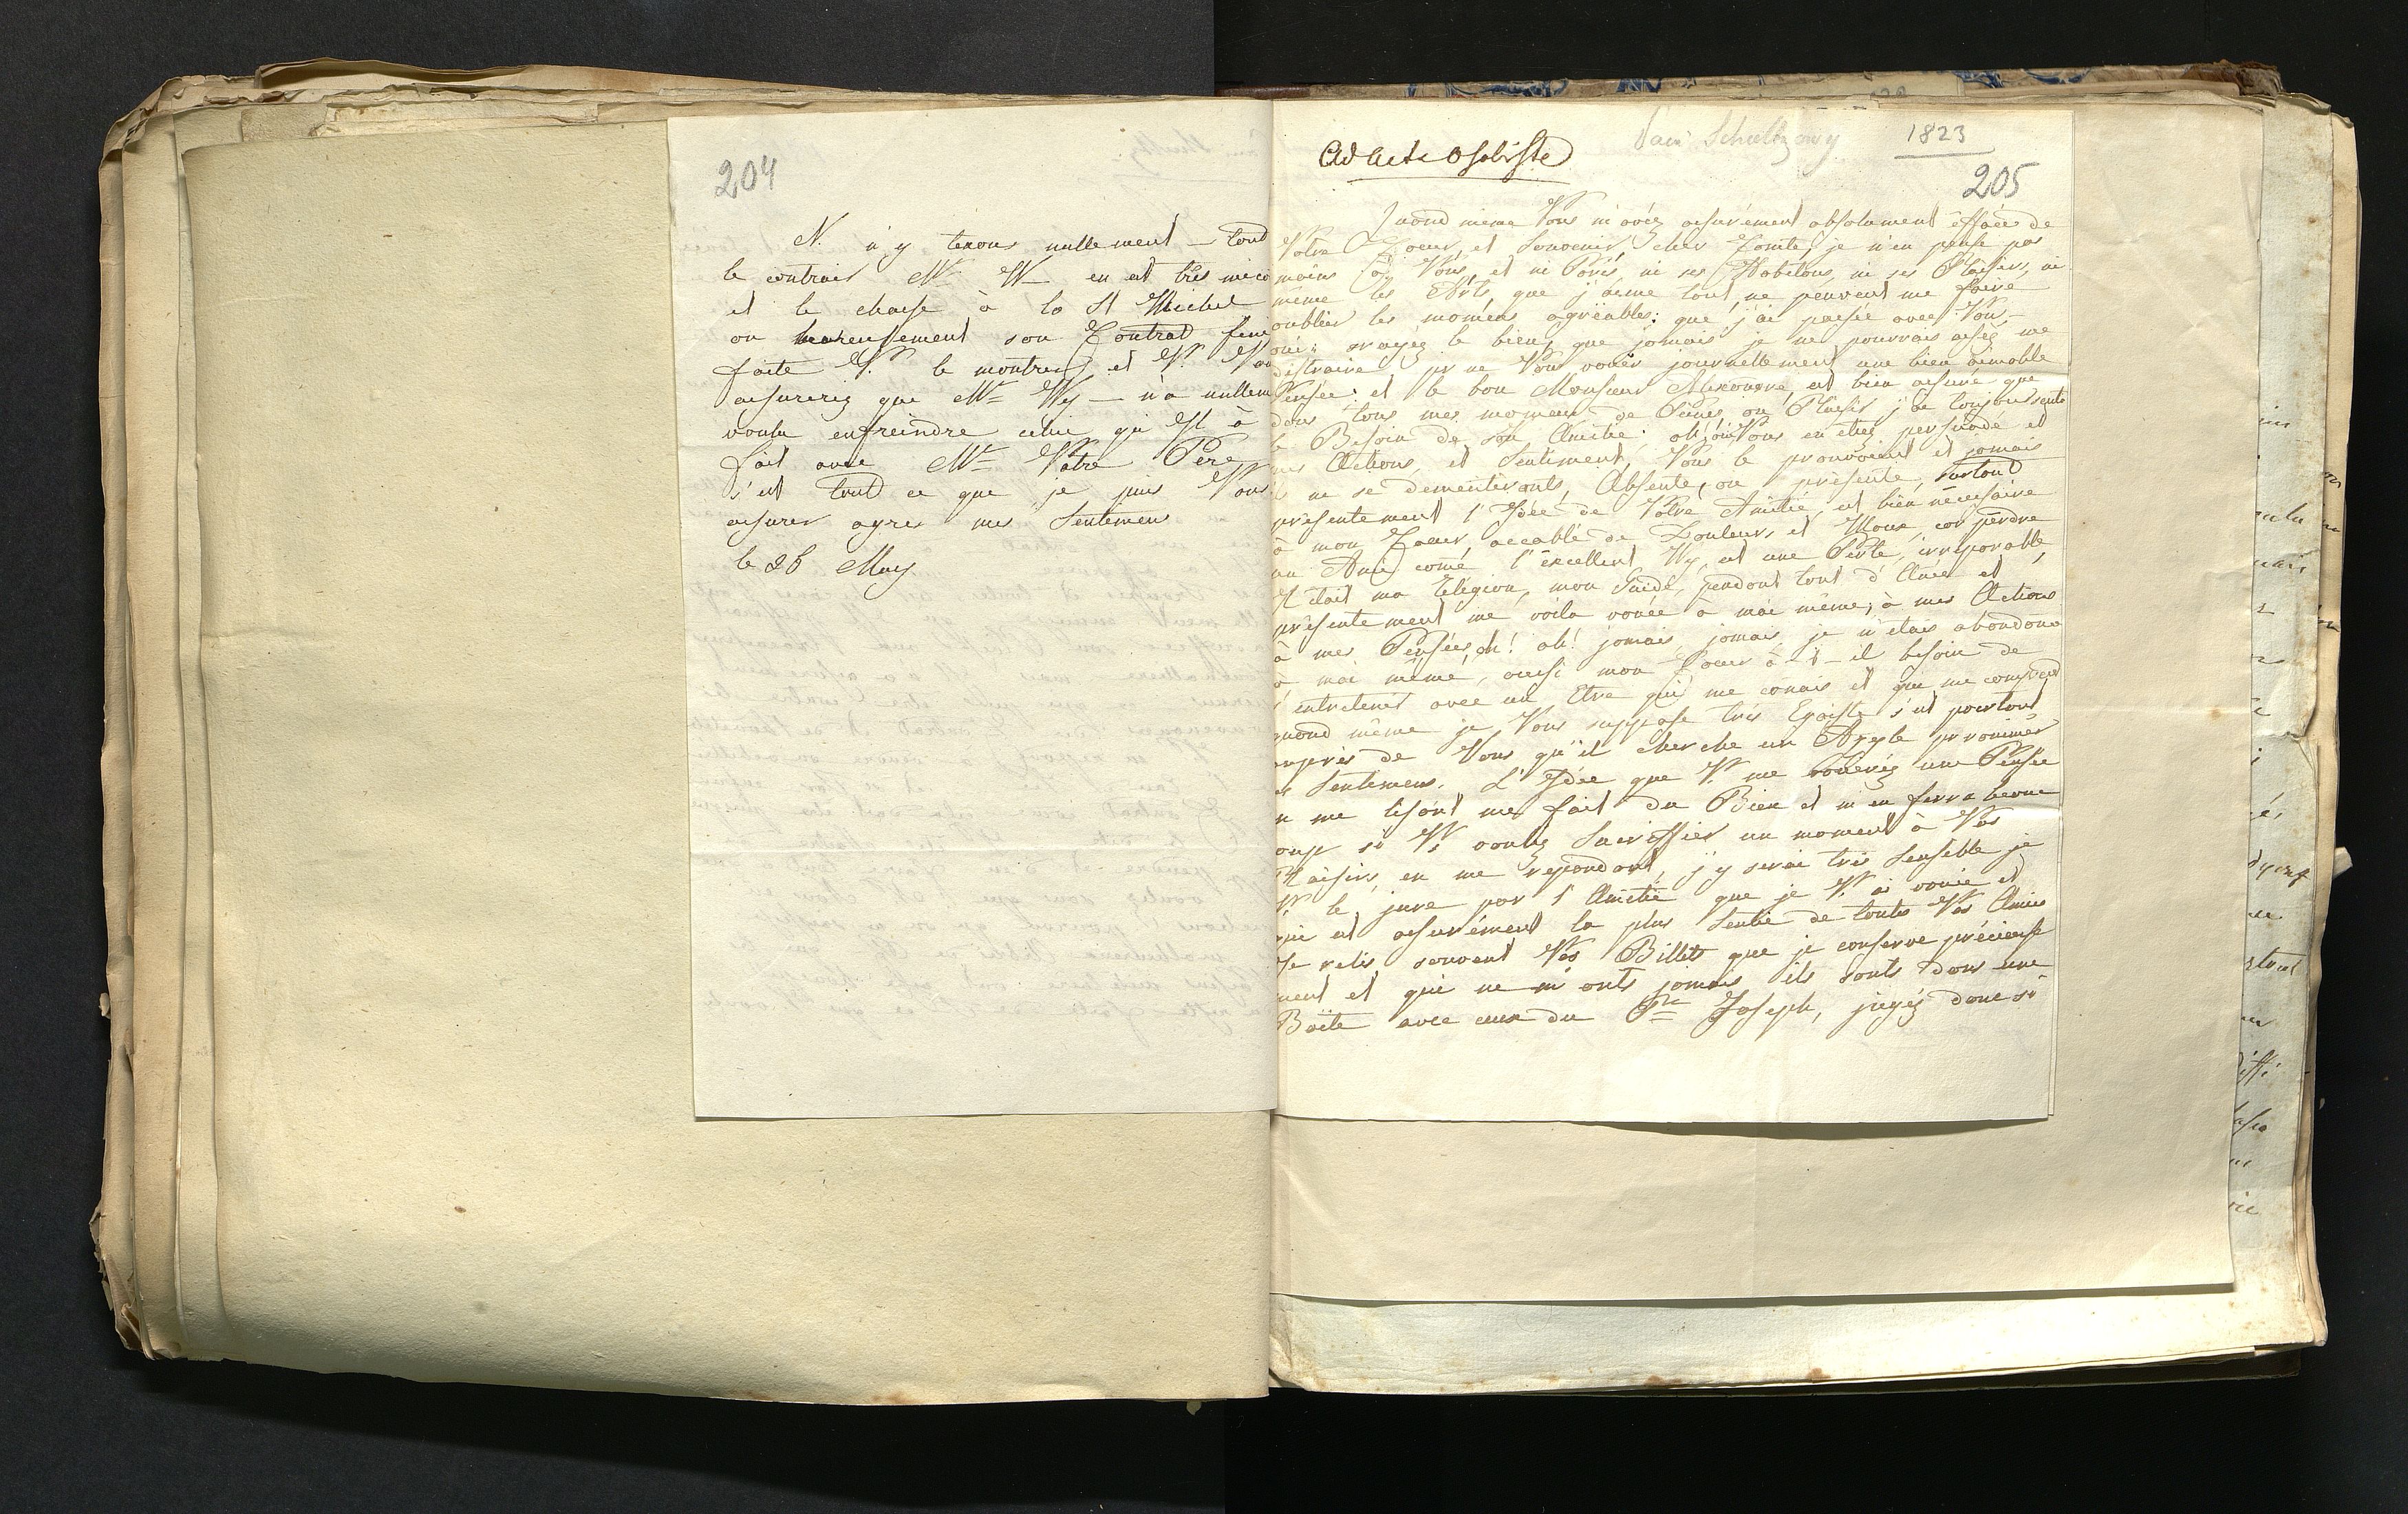 204
N. n'y tenons nullement – tout
le contrair Mr W– en est très méco
et le chasse à la St Michel
ou heureusement son Contrat fini
faite V. le montrer, et V. Vou
assurerez que Mr Wy – n'a nullem
voulu enfreindre celui qui est à
fait avec Mr Votre Père
s'est tout ce que je puis Vous
assurer agrée mes Sentemens
le 26 May
Ad acta osobiste
Pani Schultzowy
1823
205
Quand même Vous m'avéz assurément absolument éffacée de
Votre Coeur, et Souvenir, cher Comte, je n'en pense pas
moins à Vous, et ni Paris, ni ses Habitans, ni ses Plaisirs, ni
même les Arts, que j'aime tant, ne peuvent me faire
oublier les momens agréables, que j'ai passée avec Vous –
oui; croyéz le bien, que jamais je ne pourrais asséz me
distraire pr ne Vous vouér journellement une bien aimable
Pensée: et le bon Monsieur Alexandre, est bien assuré que
dans tous mes momens de Peines, ou Plaisir j'ai toujours senti
le Besoin de son Amitié: oh, oui Vous en étez persuadé et
mes Actions, et Sentiment, Vous le prouvoient et jamais
ils ne se dementironts, Absente, ou présente, surtout
présentement l'Idée de Votre Amitié, est bien nécessaire
à mon Coeur, accablé de Douleurs et Maux, car perdre
un Ami comé l'excellent Wy, est une Perte, irreparable,
Il étoit ma Réligion, mon Guide, pendant tant d'Anée et
présentement me voila vouée à moi même, à mes Actions
à mes Pensées, oh! oh! jamais, jamais je n'étais abandoné
à moi même, aussi mon Coeur à-t-il besoin de
s'entretenir avec un Etre qui me conais et qui me comprend
quand même je Vous suppose très Egoiste s'est pourtant
auprès de Vous qu'il cherche un Asyle pr ranimér
es Sentimens. L'Idée que V. me vouerez une Pensée
n me lisant me fait du Bien et m'en ferra beauc
oup si V. voulez Sacriffier un moment à Vos
Plaisirs, en me repondant, j'y serai très Sensible je
V. le jure par l'Amitié que je V. ai vouée et
qui est assurément la plus Sentie de toutes Vos Amies
Je relis souvent Vos Billets que je conserve précieuse
ment et qui ne m'onts jamais ils sonts dans une
Boëte avec ceux du Pce Joseph, jugéz donc si